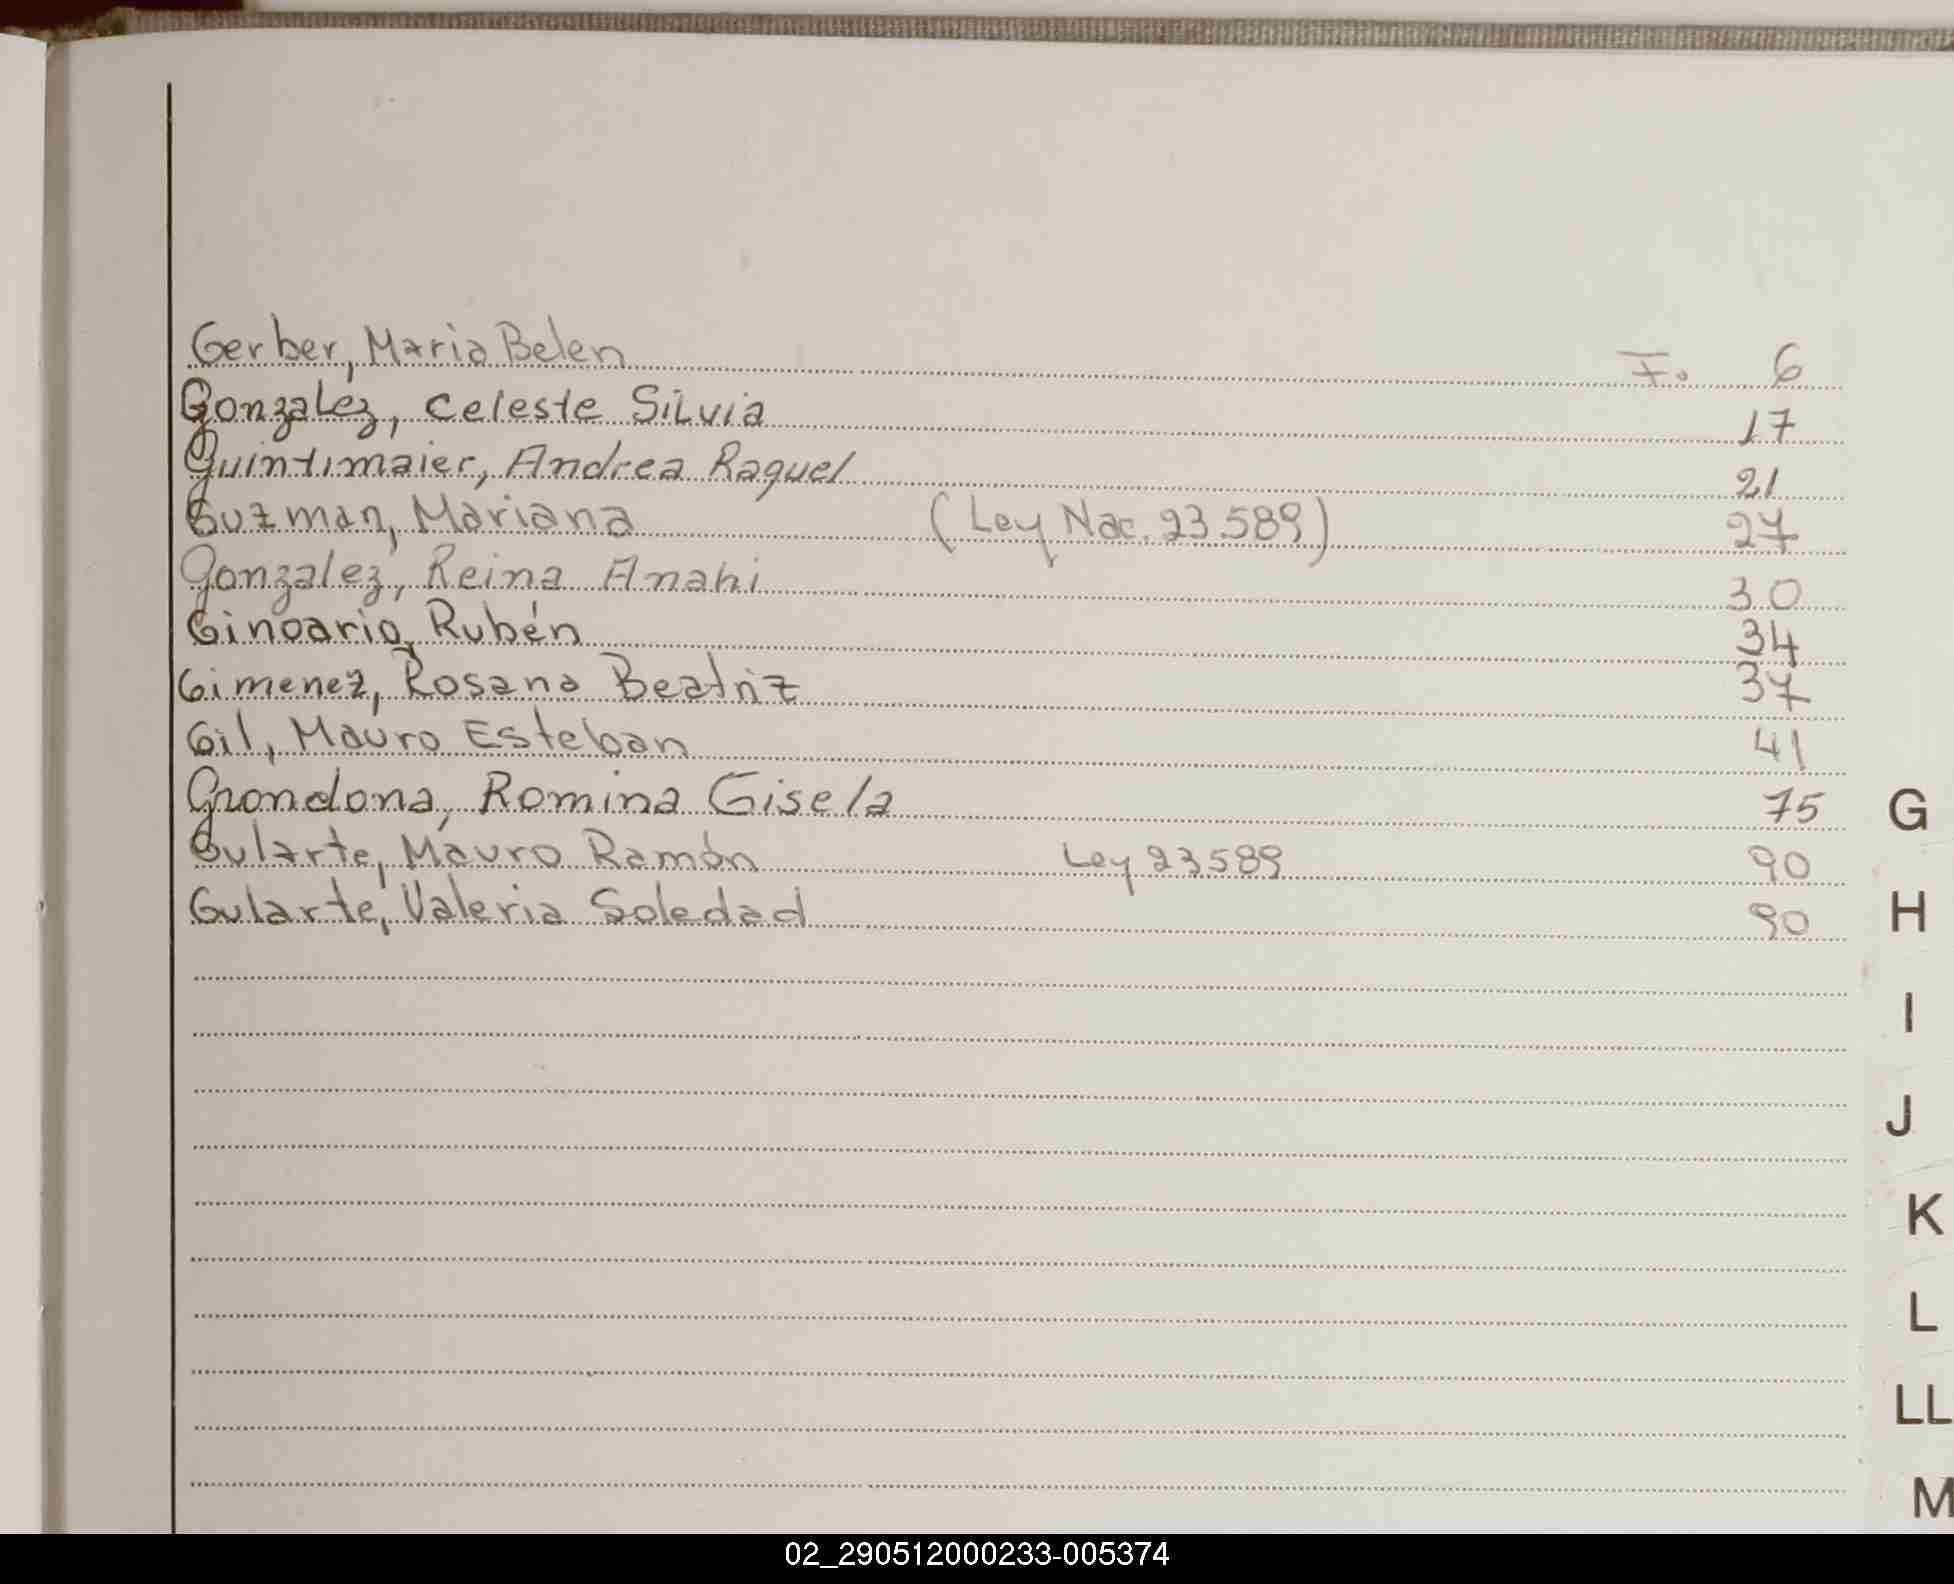 Gerber, Maria Belen F. 6
Gonzalez, Celeste Silvia 17
Guintimaier, Andrea Raquel 21
Guzman, Mariana (Ley Nac. 23.589) 27
Gonzalez, Reina Anahi 30
Ginoario, Rubén 34
Gimenez, Rosana Beatriz 37
Gil, Mauro Esteban 41
Grondona, Romina Gisela 75
Gularte, Mauro Ramón Ley 23589 90
Gularte, Valeria Soledad 90
G
H
I
J
K
L
LL
M
02_290512000233-005374